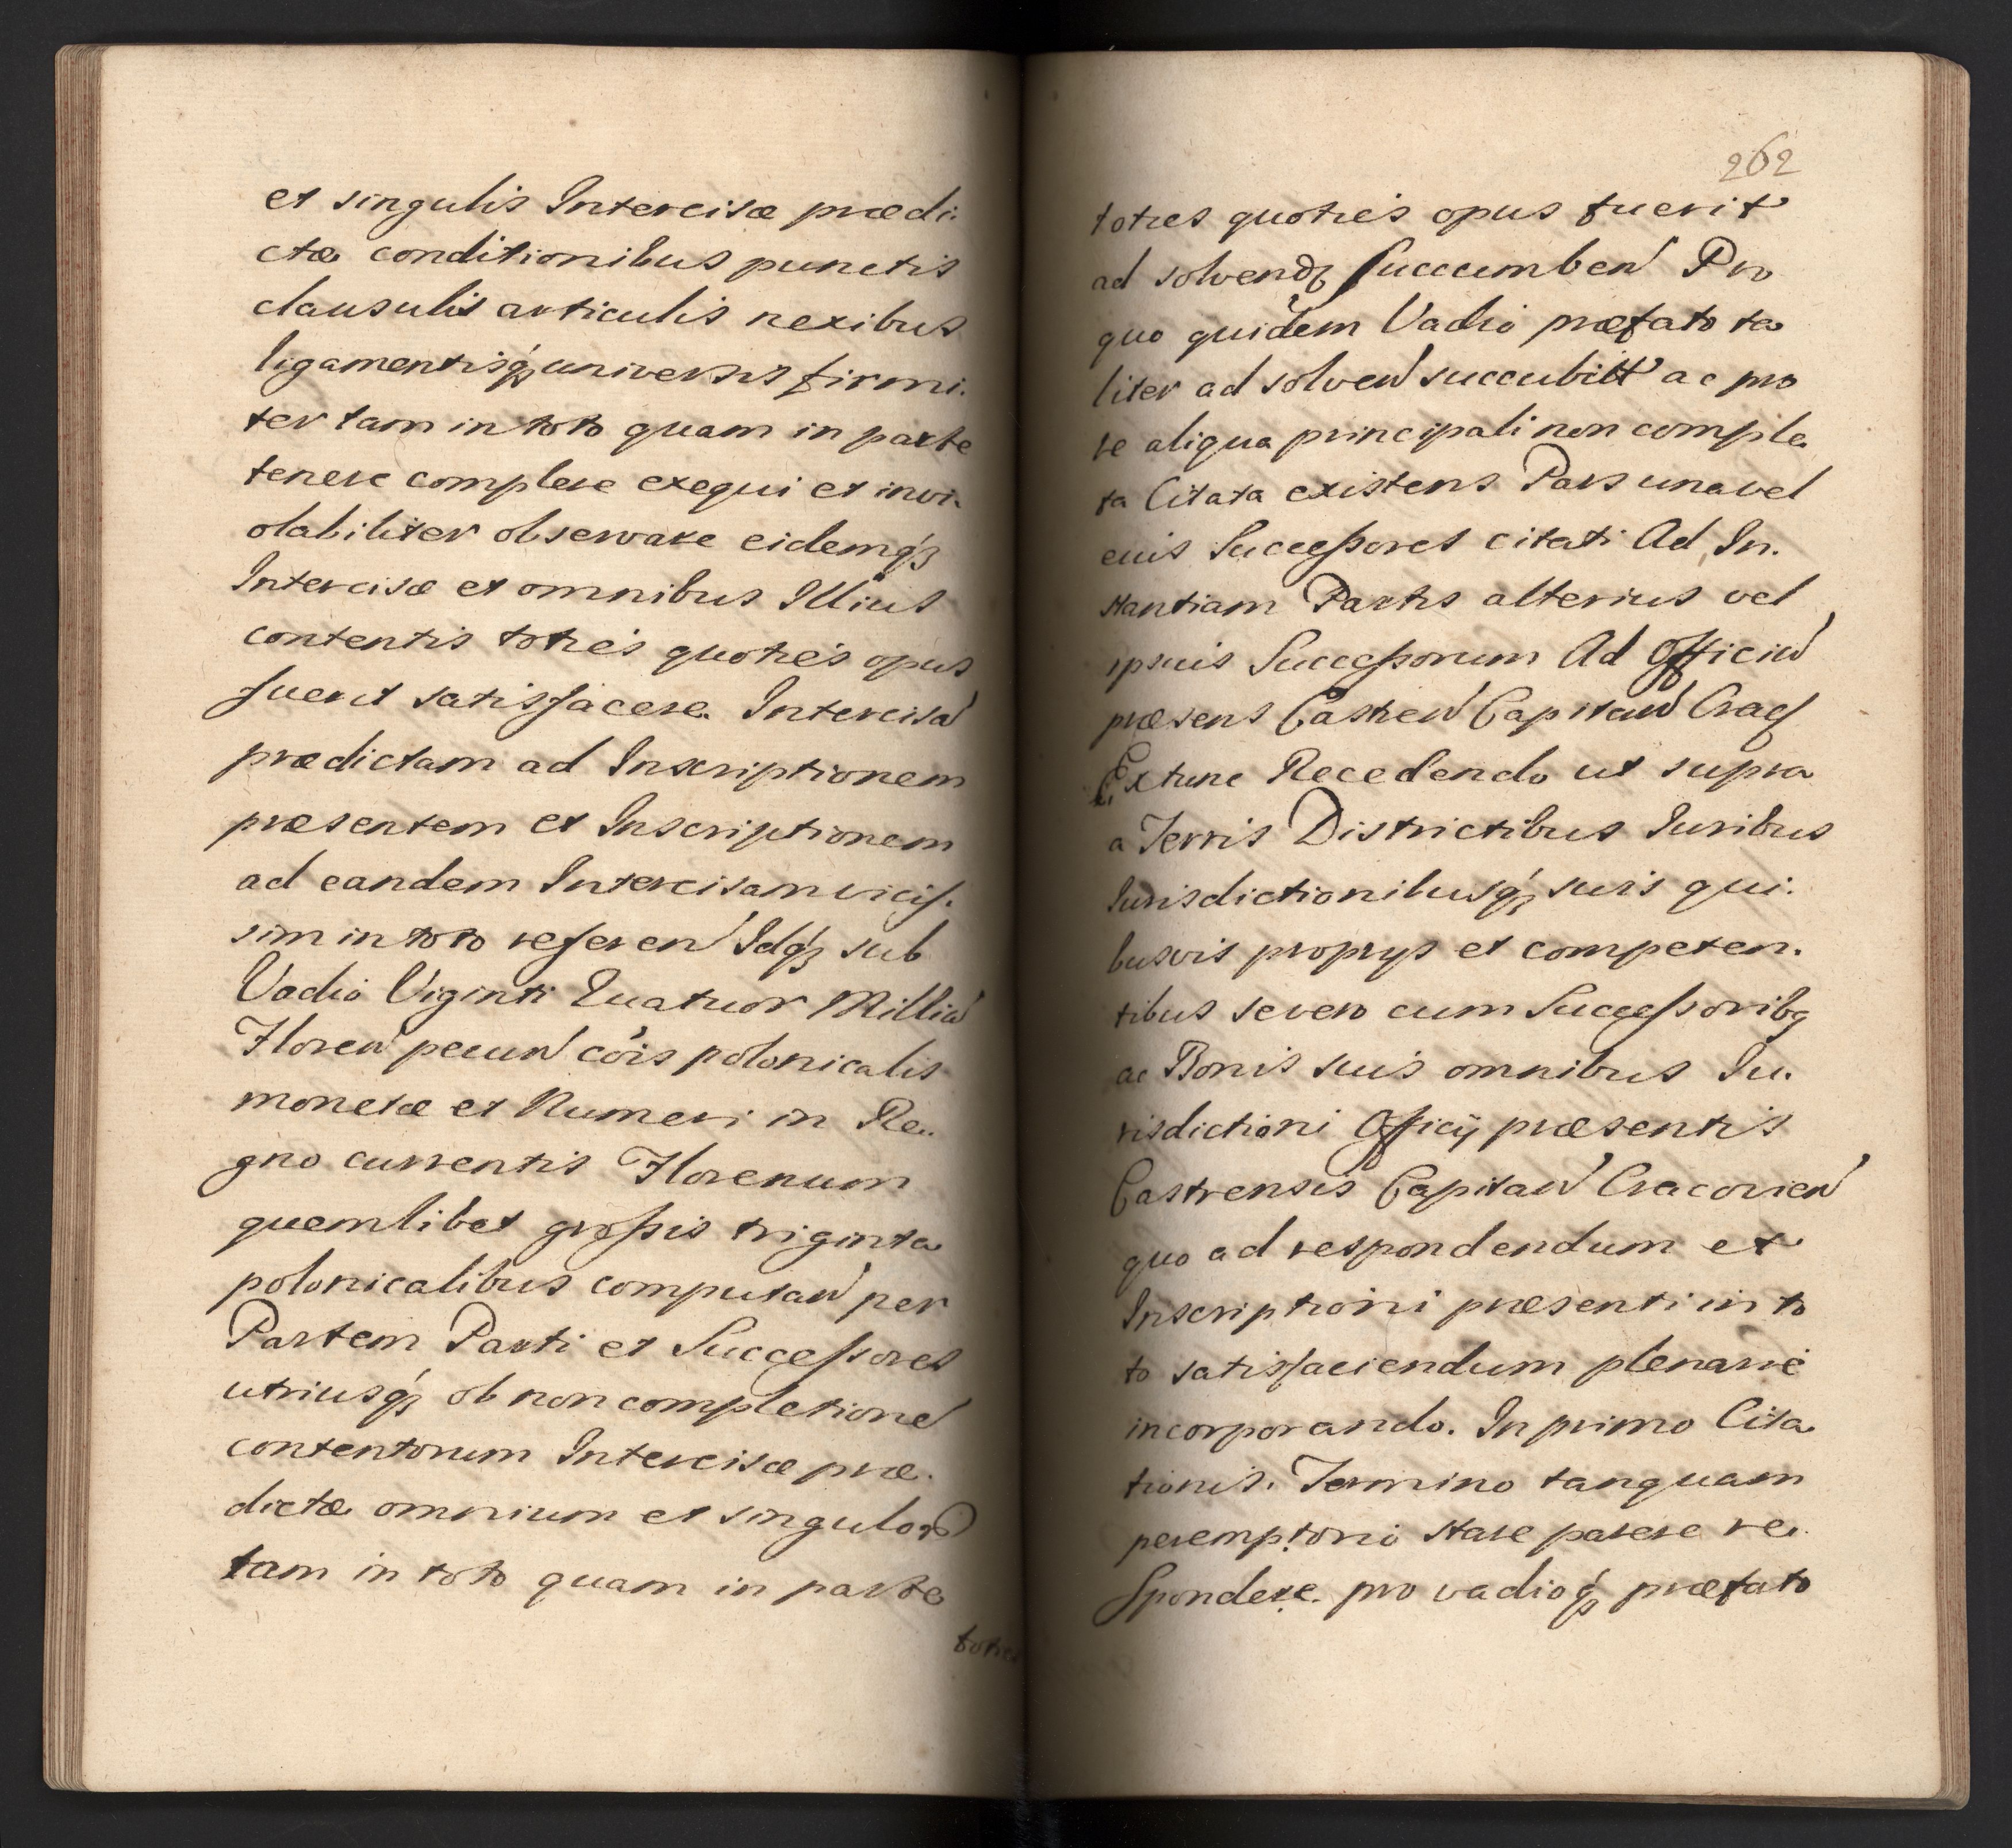 et singulis Intercisæ prædi.
ctæ conditionibus punctis
clausulis articulis nexibus
ligamentisq́ꝫ universis firmi.
ter tam in toto quam in parte
tenere complere exequi et invi.
olabiliter observare eidemq́ꝫ
Intercisæ et omnibus Illius
contentis toties quoties opus
fuerit satisfacere. Intercisa͂
prædictam ad Inscriptionem
præsentem et Inscriptionem
ad eandem Intercisam vicis.
sim in toto referen͂ Idq́ꝫ sub
Vadio Viginti Quatuor Milliu͂
Floren͂ pecun͂ cois polonicalis
monetæ et Numeri in Re.
gno currentis Florenum
quemlibet grossis triginta
polonicalibus computan͂ per
Partem Parti et Successores
utriusq́ꝫ ob non completione͂
contentorum Intercisæ præ.
dictæ omnium et singuloꝝ
tam in toto quam in parte
toties
262
toties quoties opus fuerit
ad solvendꝫ Succumben͂ Pro
quo quidem Vadio præfato ta
liter ad solven͂ succubitt ac pro
re aliqua principali non comple
ta Citata existens Pars una vel
euis Successores citati Ad In.
stantiam Partis alterius vel
ipsuis Successorum Ad Officiu͂
præsens Castren͂ Capitan͂ Crac
Extunc Recedendo ut supra
a Terris Districtibus Iuribus
Iurisdictionibusq́ꝫ suis qui.
busvis proprys et competen.
tibus se vero cum Successoribꝫ
ac Bonis suis omnibus Iu.
risdictioni Officij præsentis
Castrensis Capitan͂ Cracovien͂
quo ad respondendum et
Inscriptioni præsenti in to
to satisfaciendum plenarie
incorporando. In primo Cita
tionis. Termino tanquam
peremptorio stare parere re.
Spondere. pro vadioq́ꝫ præfato